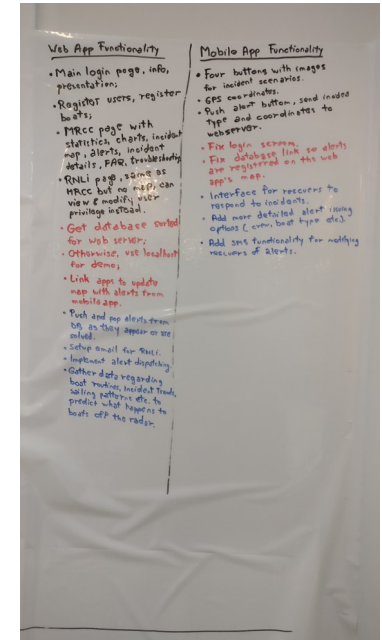 Web App Functionality
• Main login page, info,
presentation;
• Register users, register
boats;
• MRCC page with
statistics, charts, incident
map, alerts, incident
details, FAQ, troubleshooting
• RNLI page, same as
MRCC but no map, can
view & modify user
privilege instead.
• Get database sorted
for web server;
• Otherwise, use localhost
for demo;
• Link apps to update
map with alerts from
mobile app.
• Push and pop alerts from
DB as they appear or are
solved.
• Setup email for RNLI.
• Implement alert dispatching.
• Gather data regarding
boat routines, incident trends,
sailing patterns etc. to
predict what happens to
boats off the radar.
Mobile App Functionality
• Four buttons with images
for incident scenarios.
• GPS coordinates.
• Push alert button, send
type and coordinates to
webserver.
• Fix login screen.
• Fix database link so alerts
are registered on the web
app's map.
• Interface for rescuers to
respond to incidents.
• Add more detailed alert issuing
options (crew, boat type etc).
• Add sms functionality for notifying
rescuers of alerts.